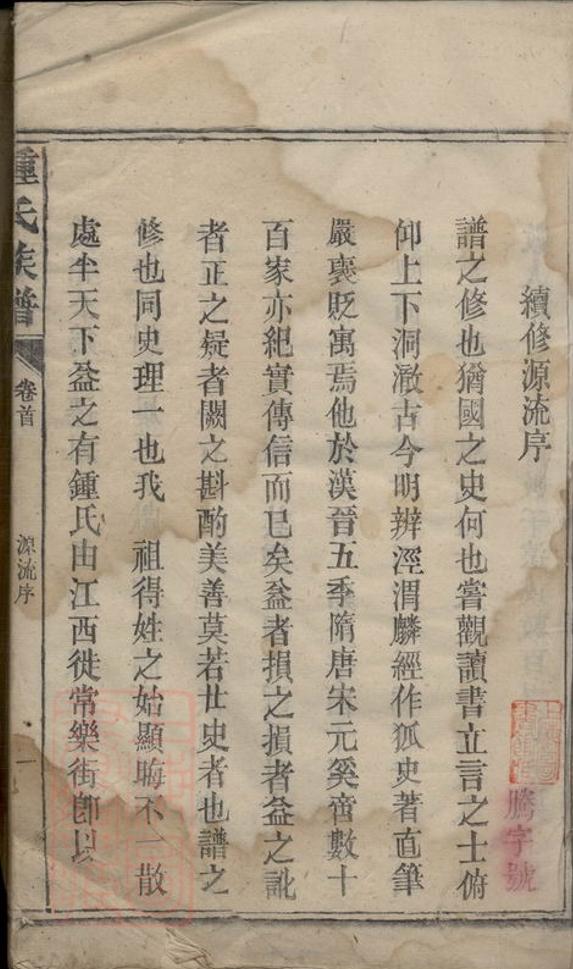 續修源流序
譜之修也猶國之史何也嘗觀讀書立言之士俯
仰上下洞澈古今明辨涇渭麟經作狐史著直筆
嚴褒貶寓焉他於漢晉五季隋唐宋元奚啻數十
百家亦紀實傳信而已矣益者損之損者益之訛
者正之疑者闕之斟酌美善莫若世史者也譜之
修也同史理一也我 祖得姓之始顯晦不一散
處半天下益之有鍾氏由江西徙常樂街卽以
鍾氏族譜
卷首
源流序
一
騰字號